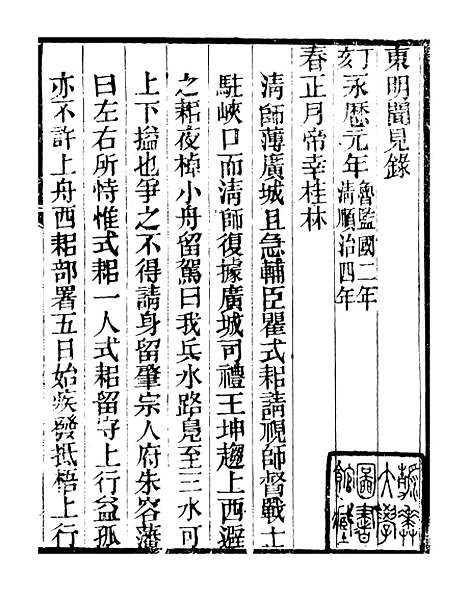 東明聞見錄
丁亥永歷元年魯監國二年清順治四年
春正月帝幸桂林
清師薄廣城且急輔臣瞿式耜請視師督戰士
駐峽口而清師復據廣城司禮王坤趨上西避
之耜夜棹小舟留駕曰我兵水路鳧至三水可
上下搤也爭之不得請身留肇宗人府朱容藩
曰左右所恃惟式耜一人式耜留守上行益孤
亦不許上舟西耜部署五日始疾發抵梧上行
燕京大學圖書館藏